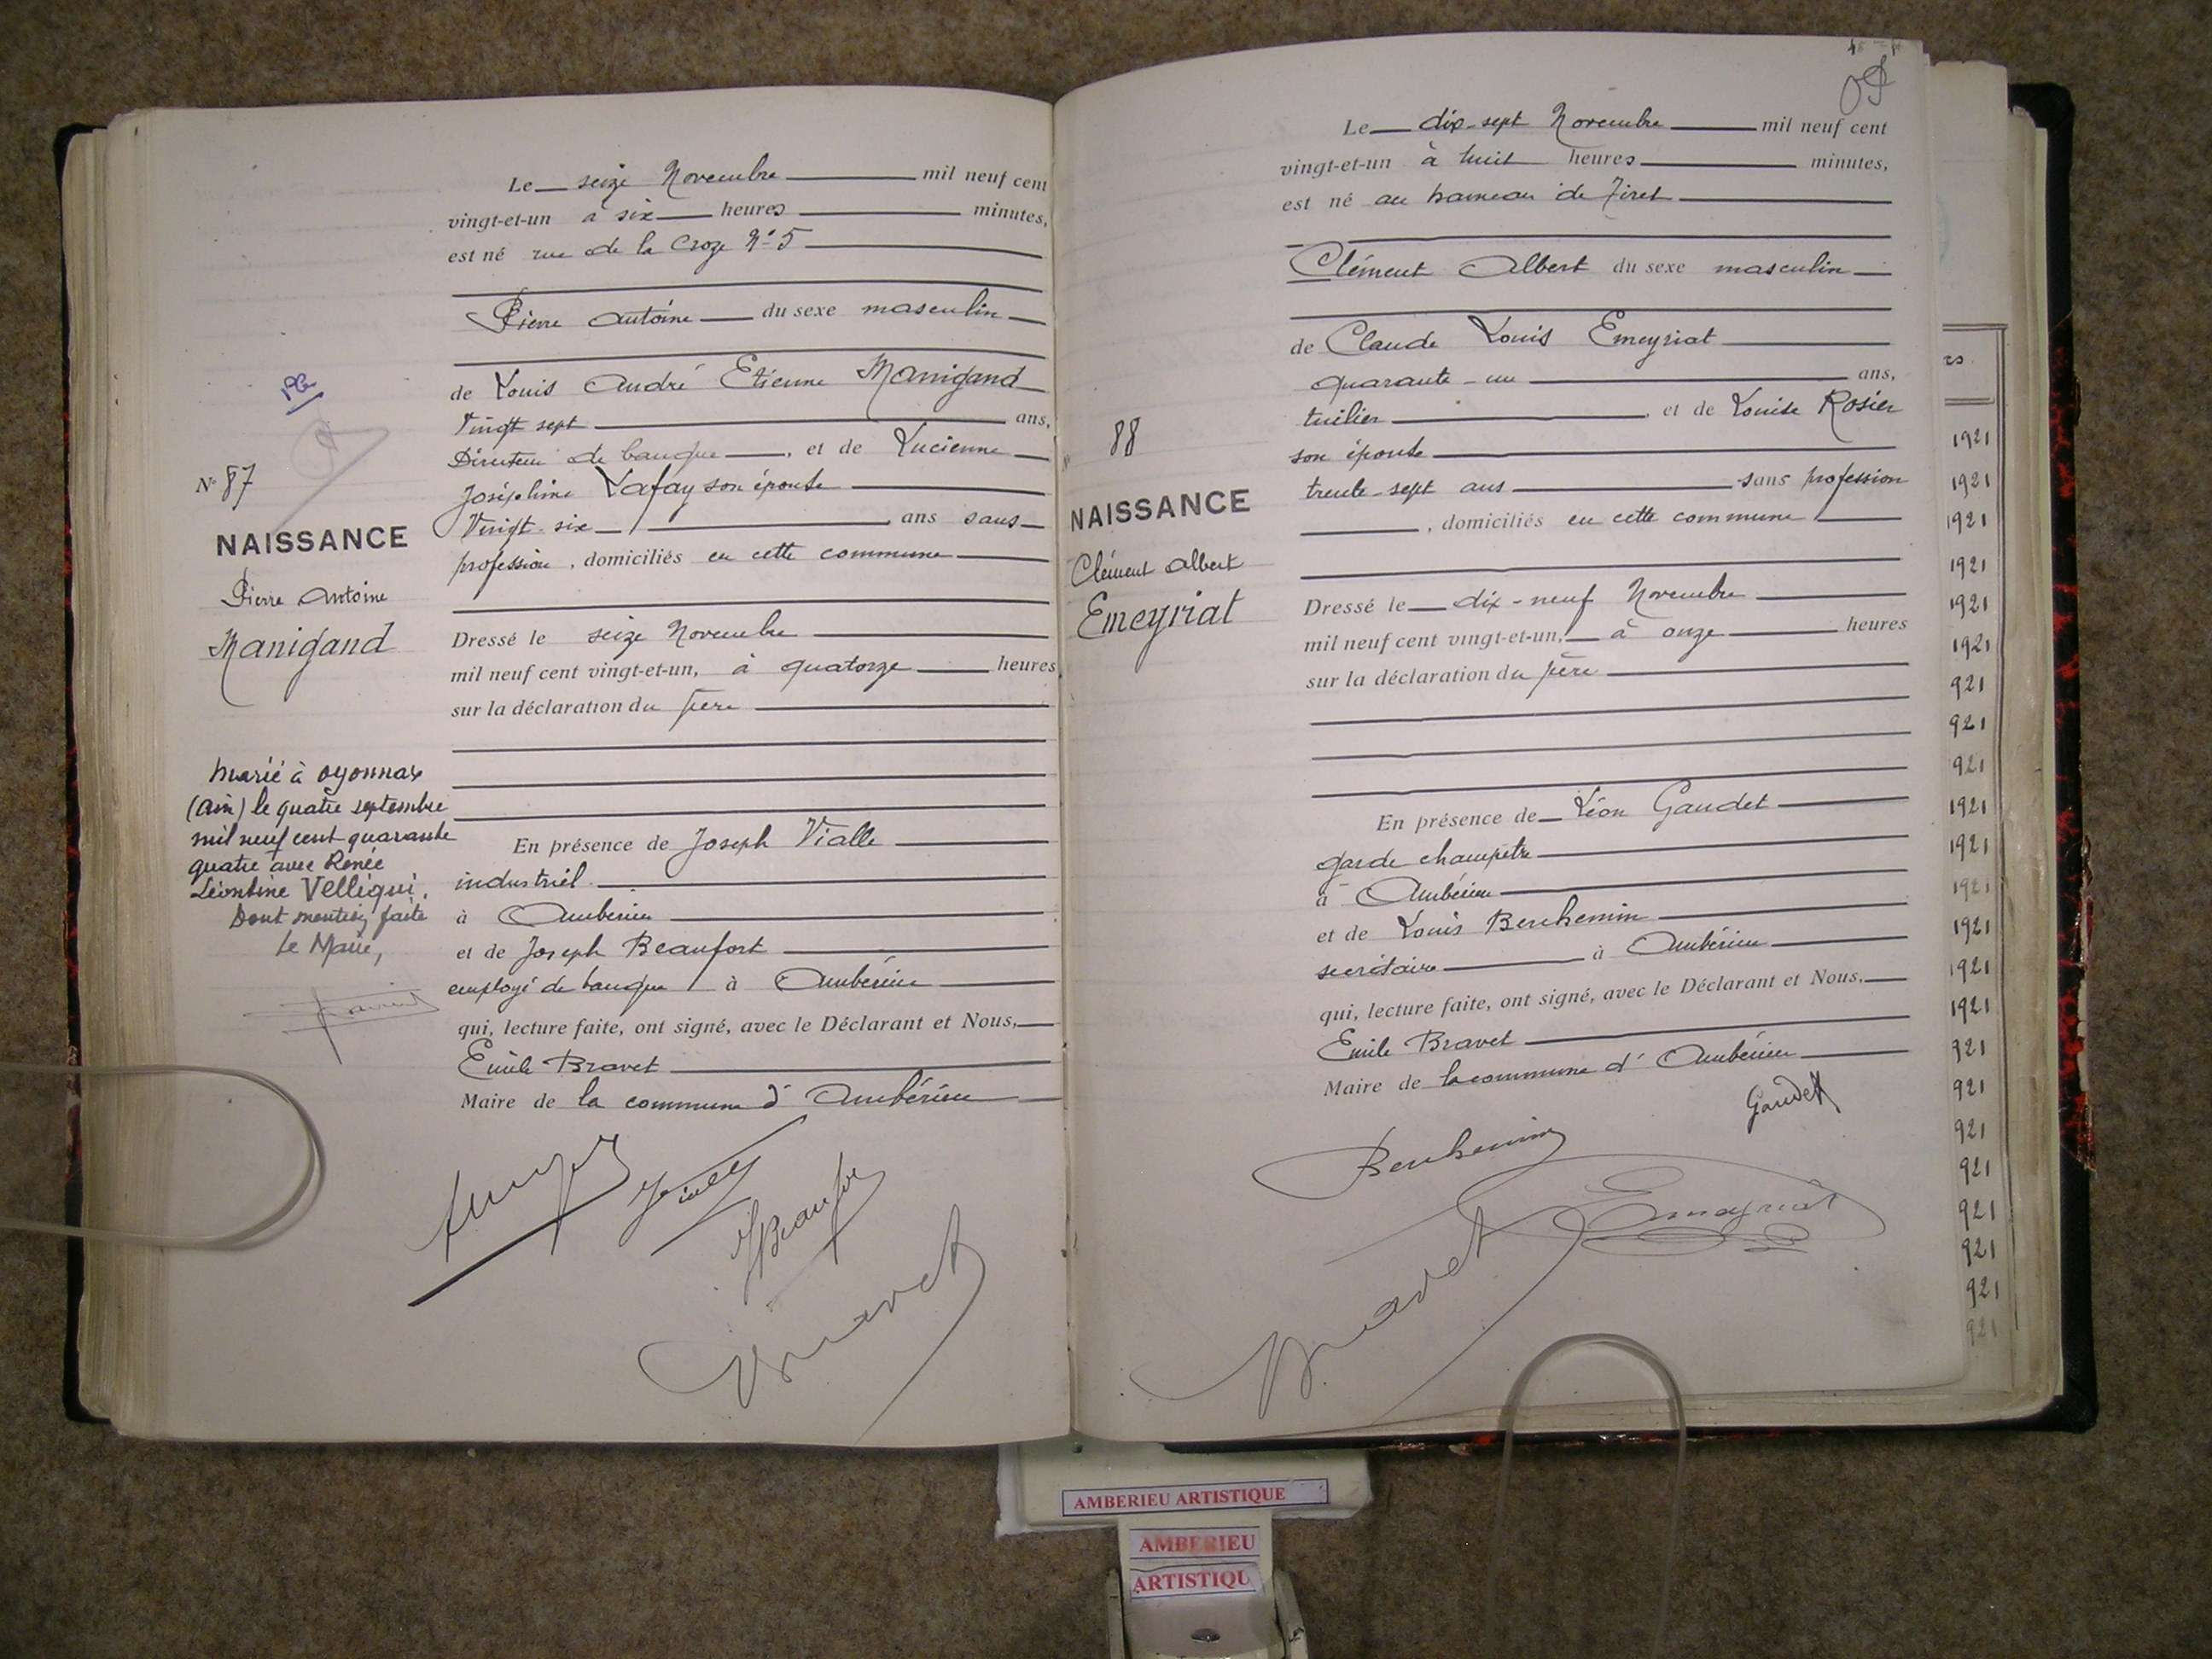 N° 87
NAISSANCE
Pierre Antoine
Manigand
marié à Oyonnax
(Ain) le quatre septembre
mil neuf cent quarante
quatre avec Renée
Léontine Velliqui.
Dont mention faite
Le Maire,
Le seize Novembre mil neuf cent
vingt-et-un à six heures minutes,
est né rue de la Croze N° 5
Pierre Antoine du sexe masculin
de Louis André Etienne Manigand
Vingt sept ans,
Directeur de banque, et de Lucienne
Joséphine Lafay son épouse
Vingt-six ans sans
profession, domiciliés en cette commune
Dressé le seize Novembre
mil neuf cent vingt-et-un, à quatorze heures
sur la déclaration du père
En présence de Joseph Vialle
industriel
à Ambérieu
et de Joseph Beaufort
employé de banque à Ambérieu
qui, lecture faite, ont signé, avec le Déclarant et Nous,
Emile Bravet
Maire de la commune d'Ambérieu
Beaufort
Bravet
88
NAISSANCE
Clément Albert
Emeyriat
Le dix-sept Novembre mil neuf cent
vingt-et-un à huit heures minutes,
est né au hameau de Tiret
Clément Albert du sexe masculin
de Claude Louis Emeyriat
quarante-un ans,
tuilier, et de Louise Rosier
son épouse
trente-sept ans sans profession
, domiciliés en cette commune
Dressé le dix-neuf Novembre
mil neuf cent vingt-et-un, à onze heures
sur la déclaration du père
En présence de Léon Gaudet
garde champêtre
à Ambérieu
et de Louis Berthemin
secrétaire à Ambérieu
qui, lecture faite, ont signé, avec le Déclarant et Nous,
Emile Bravet
Maire de la commune d'Ambérieu
Gaudet
Berthemin
Emeyriat
Bravet
rs
1921
1921
1921
1921
1921
1921
921
921
921
1921
1921
1921
1921
1921
1921
921
921
921
921
921
921
921
921
AMBERIEU ARTISTIQUE
AMBERIEU
ARTISTIQU